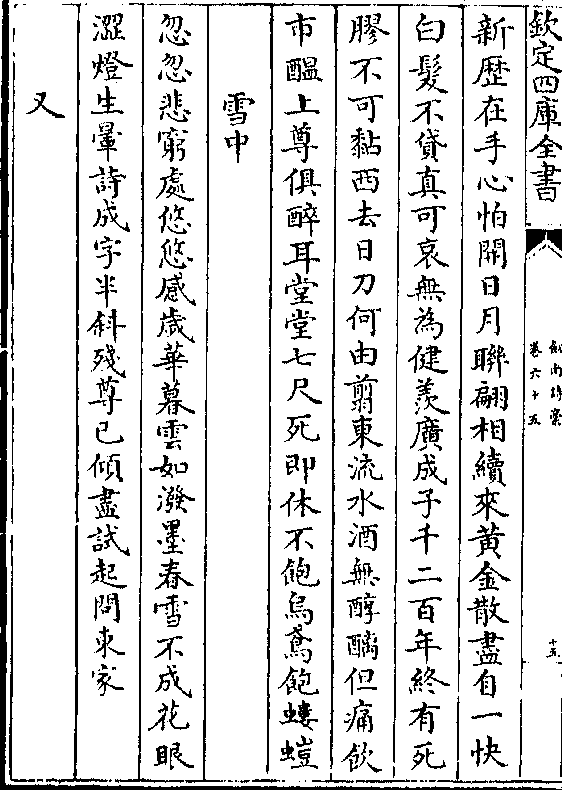 欽定四庫全書
劍南詩槀
卷六十五
十五
新歴在手心怕開日月聯翩相續來黄金散盡自一快
白髮不貸真可哀無為健羨廣成子千二百年終有死
膠不可黏西去日刀何由翦東流水酒無醇醨但痛飲
市醖上尊俱醉耳堂堂七尺死即休不飽烏鳶飽螻螘
雪中
忽忽悲窮處悠悠感歳華暮雲如潑墨春雪不成花眼
澀燈生暈詩成字半斜殘尊已傾盡試起問東家
又